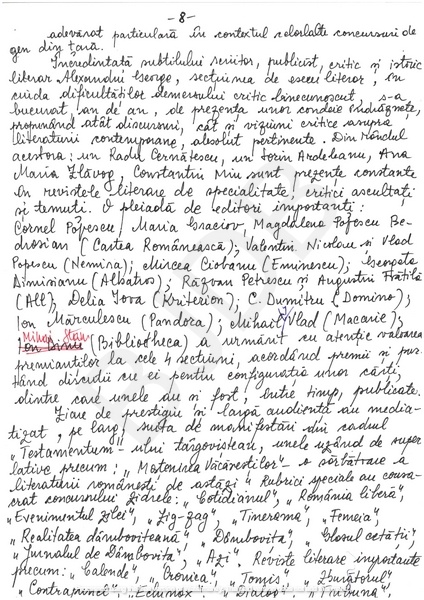 -8-
adevărat particulară în contextul celorlalte concursuri de
gen din țară.
Încredințată subtilului scriitor, publicist, critic și istoric
literar Alexandru George, secțiunea de eseu literar, în
ciuda dificultăților demersului critic binecunoscut, s-a
bucurat, an de an, de prezența unor condeie îndrăznețe,
propunând atât discursuri, cât și viziuni critice asupra
literaturii contemporane, absolut pertinente. Din rândul
acestora: un Radu Cernătescu, un Sorin Ardeleanu, Ana
Maria Zlăvog, Constantin Miu sunt prezențe constante
în revistele literare de specialitate, critici ascultați
și temuți. O pleiadă de editori importanți:
Cornel Popescu, Maria Graciov, Magdalena Popescu Be-
drosian (Cartea Românească); Valentin Nicolau și Vlad
Popescu (Nemira); Mircea Ciobanu (Eminescu); Georgeta
Dimisianu (Albatros); Răzvan Petrescu și Augustin Frățilă
(All), Delia Iova (Kriterion); C. Dumitru (Domino);
Ion Mărculescu (Pandora); Mihail Vlad (Macarie);
Mihai Stan
(Bibliotheca) a urmărit cu atenție valoarea
premianților la cele 4 secțiuni, acordând premii și pur-
tând discuții cu ei pentru configurația unor cărți,
dintre care unele au și fost, între timp, publicate.
Ziare de prestigiu și largă audiență au media-
tizat, pe larg, suita de manifestări din cadrul
"Testamentum"-ului târgoviștean, unele uzând de super
lative precum: "Matinina Văcăreștilor" - o sărbătoare a
literaturii românești de astăzi". Rubrici speciale au consa-
crat concursului ziarele: "Cotidianul", "România liberă",
"Evenimentul zilei", "Zig-zag", "Tinerama", "Femeia",
"Realitatea dâmbovițeană", "Dâmbovița", "Glasul cetății",
"Jurnalul de Dâmbovița", "Azi". Reviste literare importante
precum: "Calende", "Cronica", "Tomis", "Zburătorul"
"Contrapunct", "Echinox", "Dialog", "Tribuna",